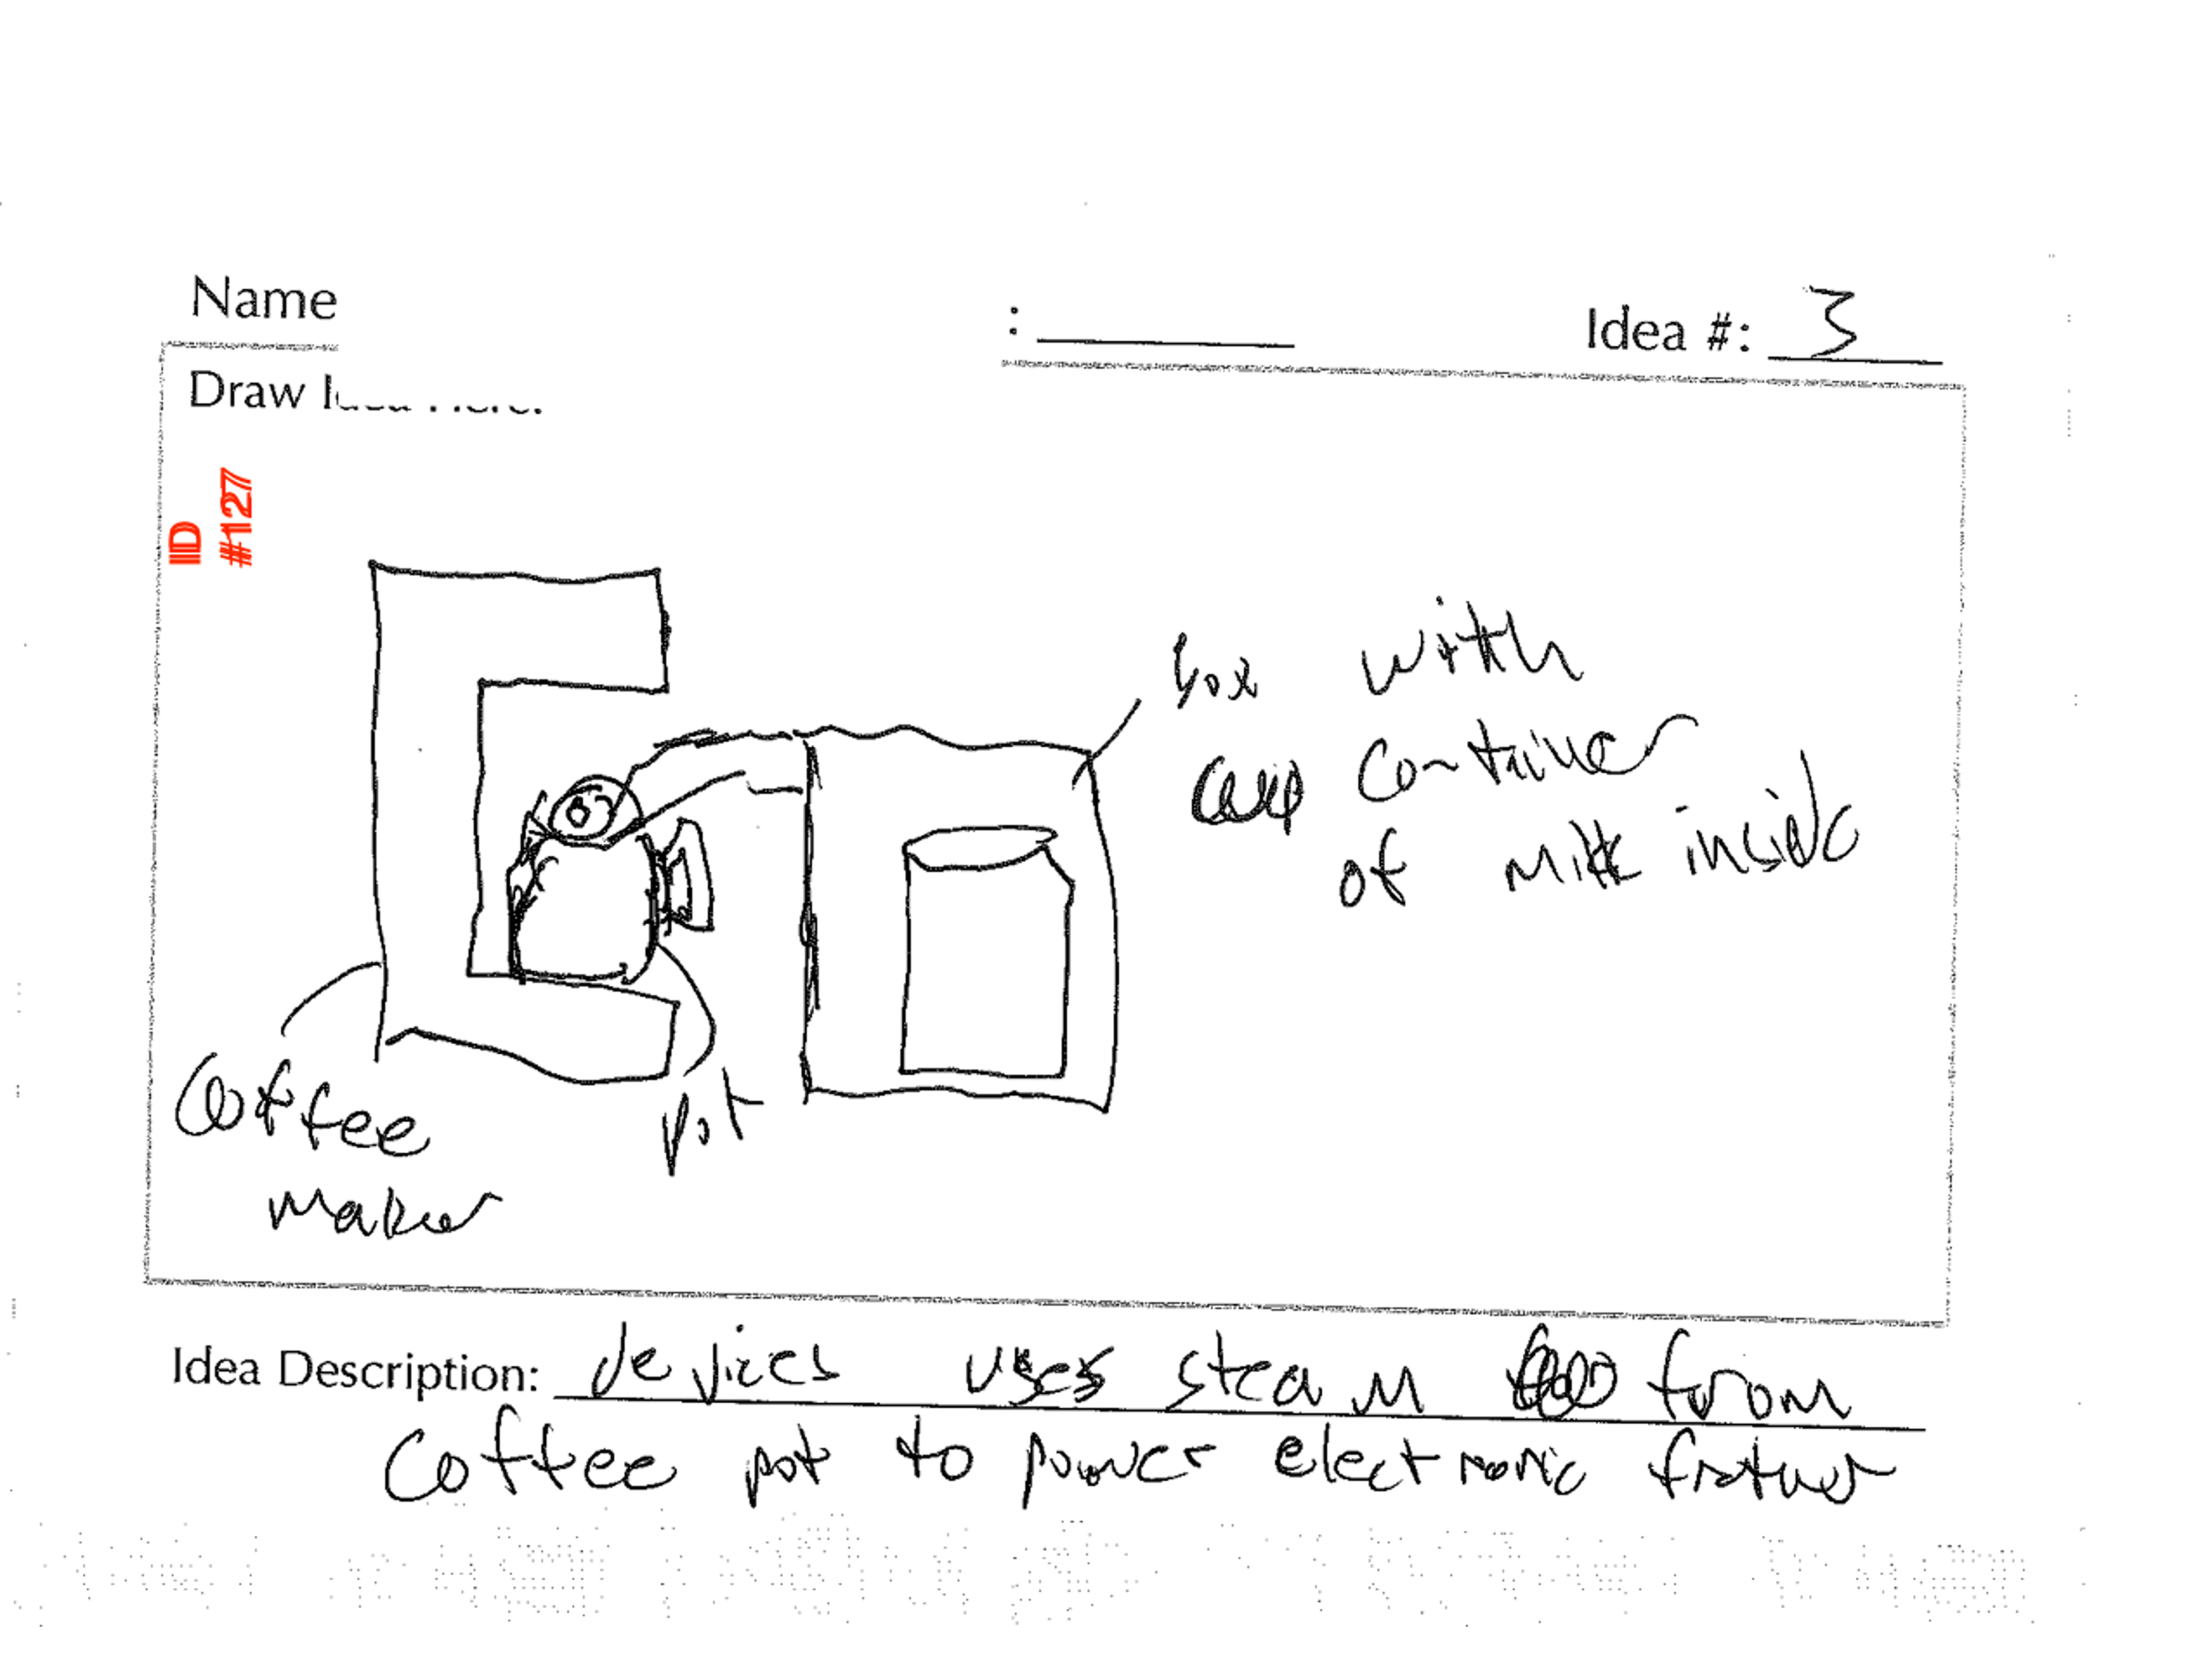 Name : Idea #: 3
Draw Idea Here:
ID
#127
box with
container
of milk inside
Coffee
maker
pot
Idea Description: devices uses steam from
coffee pot to power electronic